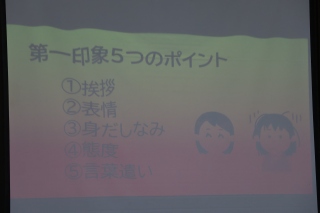 第一印象５つのポイント
①挨拶
②表情
③身だしなみ
④態度
⑤言葉遣い